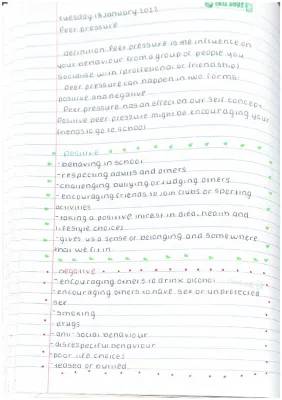 Tuesday 18 January 2022
Peer pressure
definition: Peer pressure is the influence on
your behaviour from a group of people you
socialise with (professional or friendship)
Peer pressure can happen in two forms:
positive and negative
Peer pressure has an effect on our self concept.
Positive peer pressure might be encouraging your
friends to go to school
positive
- behaving in school
- respecting adults and others
- challenging bullying or judging others
- encouraging friends to join clubs or sporting
activities
- taking a positive intrest in diet, health and
lifestyle choices
- gives us a sense of belonging and somewhere
that we fit in
negative
- encouraging others to drink alcohol
- encouraging others to have sex or unprotected
sex
- smoking
- drugs
- anti-social behaviour
- disrespectful behaviour
- poor life choices
- teased or bullied